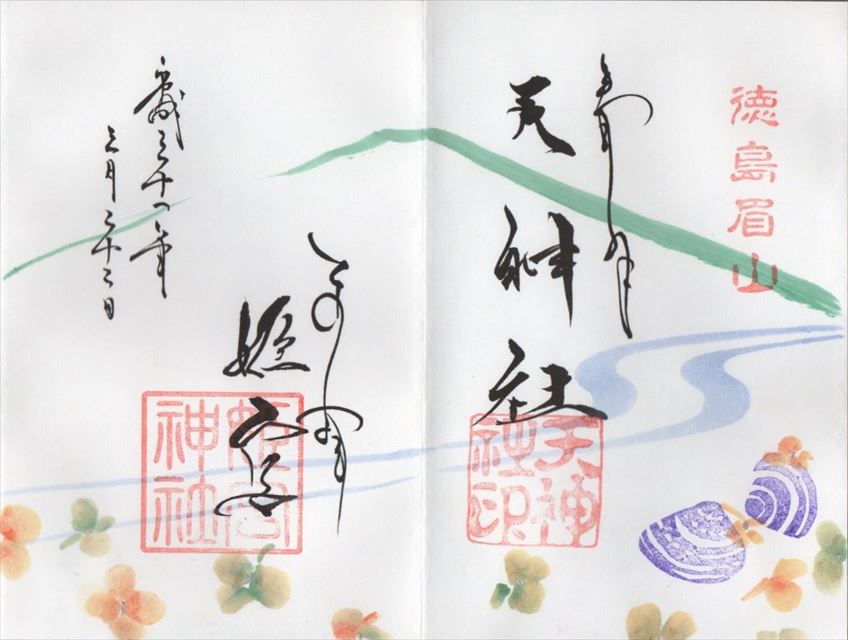 徳島眉山
奉拝
天神社
天神社印
奉拝
姫宮
姫宮神社
平成三十一年